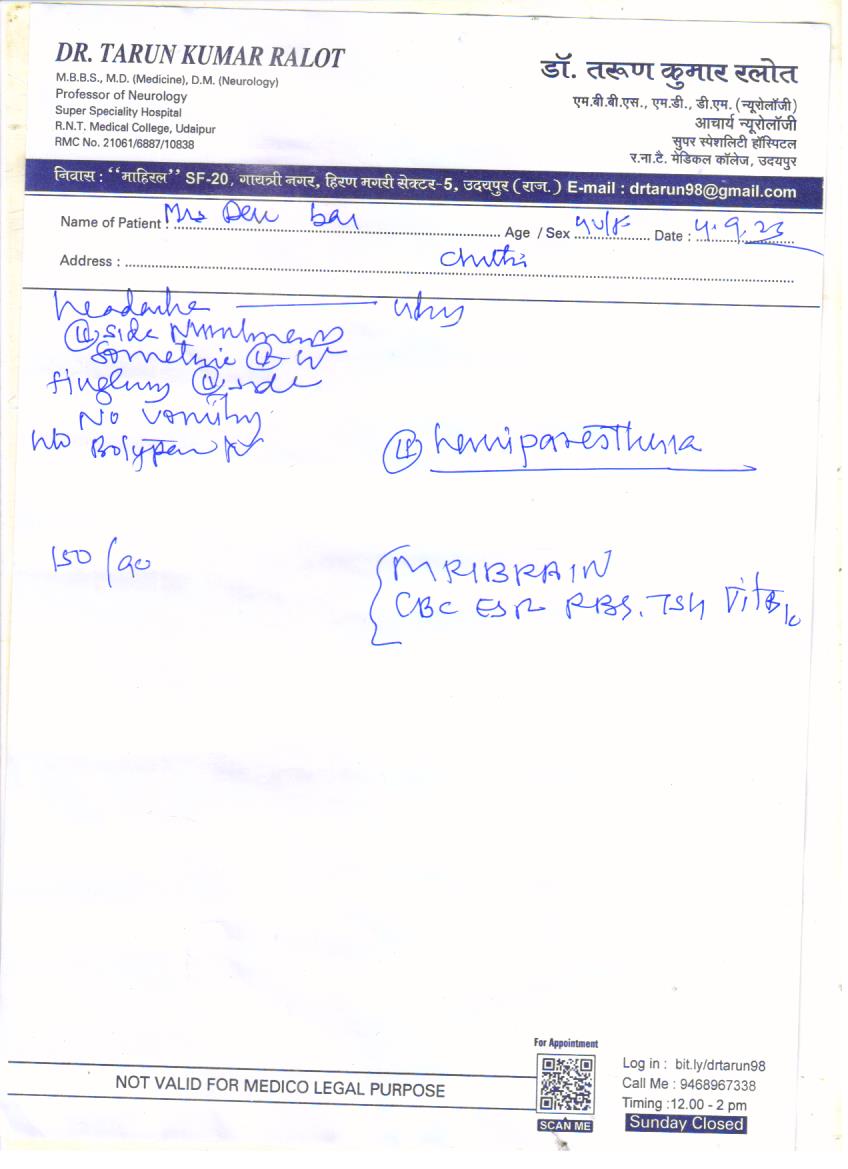 DR. TARUN KUMAR RALOT
M.B.B.S., M.D. (Medicine), D.M. (Neurology)
Professor of Neurology
Super Speciality Hospital
R.N.T. Medical College, Udaipur
RMC No. 21061/6887/10838
डॉ. तरूण कुमार रलोत
एम.बी.बी.एस., एम.डी., डी.एम. (न्यूरोलॉजी)
आचार्य न्यूरोलॉजी
सुपर स्पेशलिटी हॉस्पिटल
र.ना.टै. मेडिकल कॉलेज, उदयपुर
निवास : "माहिरल" SF-20, गायत्री नगर, हिरण मगरी सेक्टर-5, उदयपुर (राज.) E-mail : drtarun98@gmail.com
Name of Patient : Mrs Deu bai Age / Sex Date : 4.9.23
Address :
headache
side
side
No vomiting
hemiparesthesia
150/90
MRI BRAIN
CBC ESR RBS. TSH Vit B12
NOT VALID FOR MEDICO LEGAL PURPOSE
For Appointment
SCAN ME
Log in : bit.ly/drtarun98
Call Me : 9468967338
Timing :12.00 - 2 pm
Sunday Closed